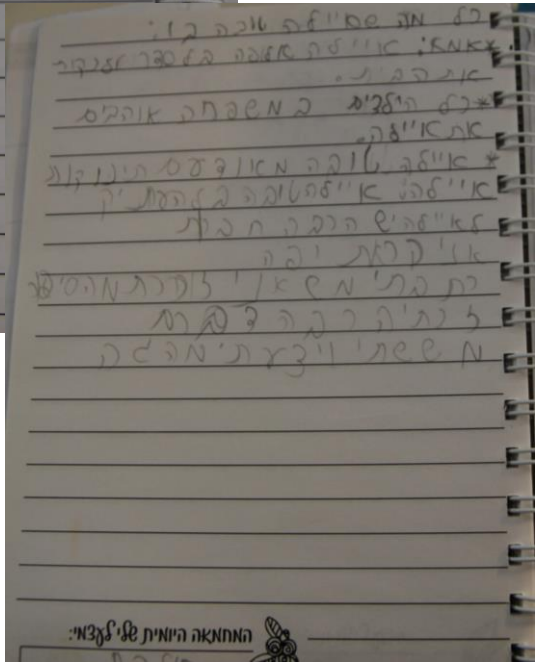 כל מה שאיילה טובה בו:
*אמא: איילה אלופה בלסדר ולנקות
את הבית.
*כל הילדים במשפחה אוהבים
את איילה.
* איילה טובה מאוד עם תינוקות
איילה: איילה טובה בלהעתיק
לאיילה יש הרבה חברות
אני קראת יפה
כתבתי מ ש אני זוכרת מהסיפור
זכרתי הרבה דברים
מ ששתי וידעתי מה זה
המחמאה היומית שלי לעצמי: